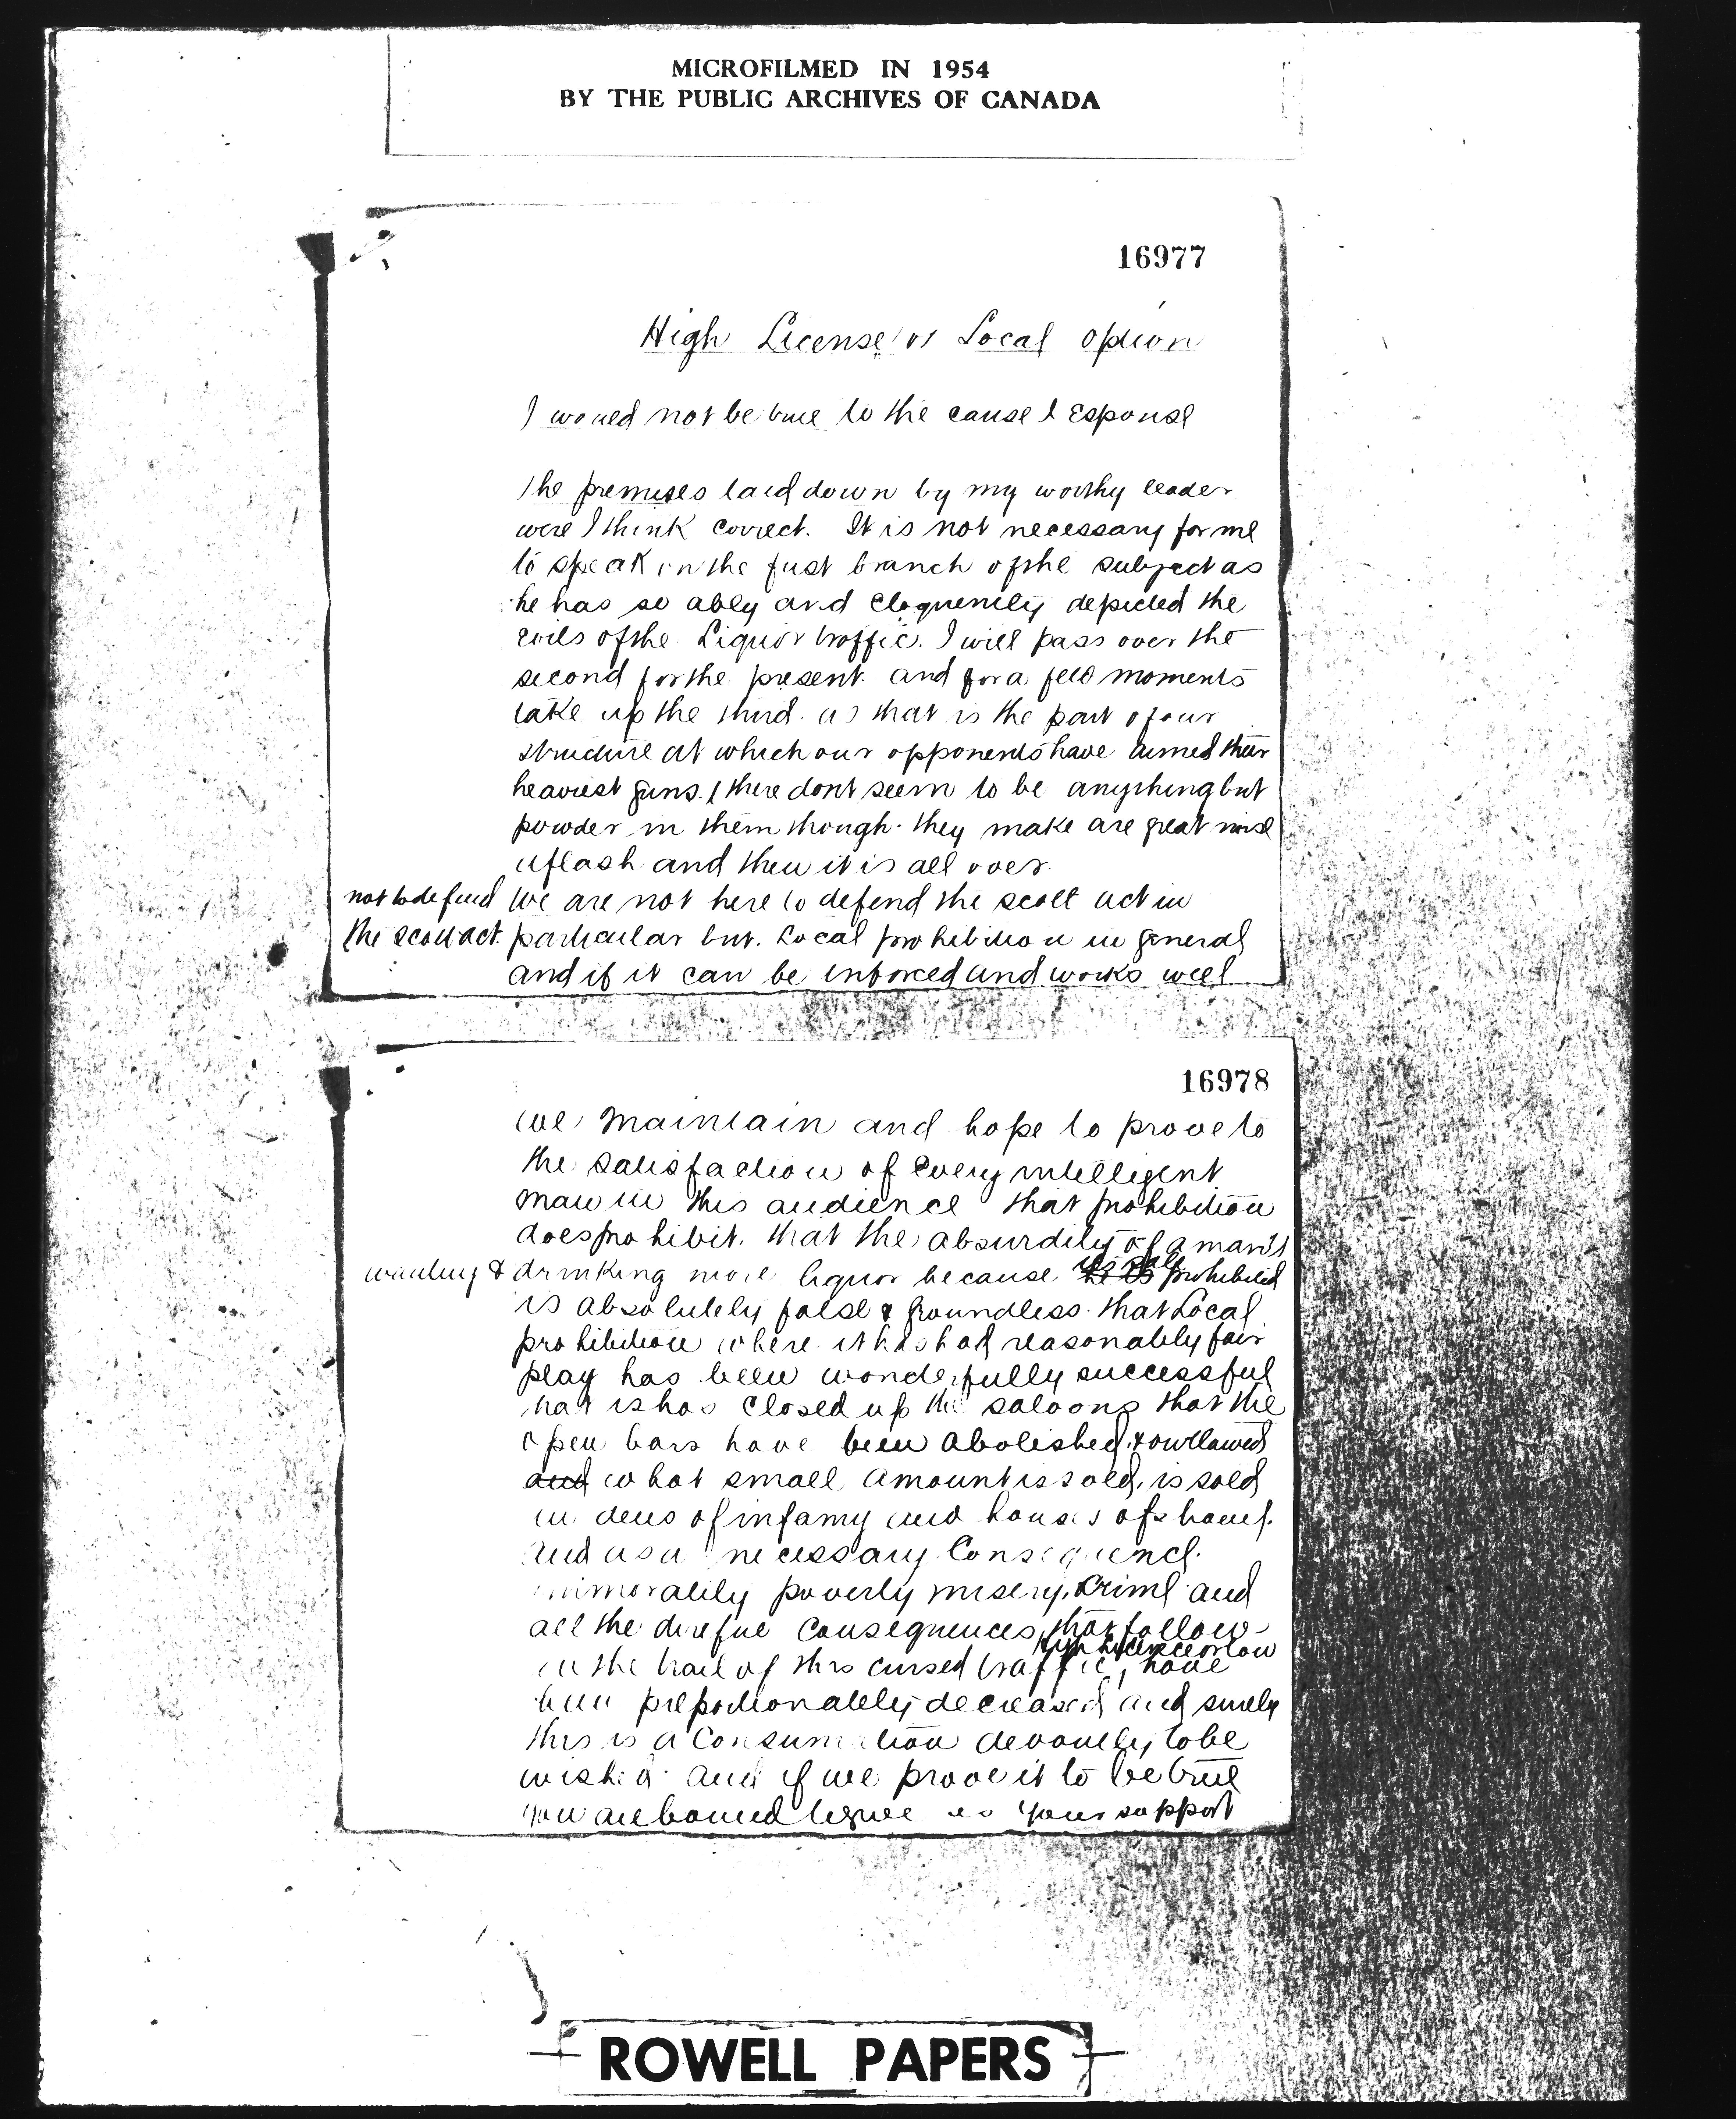 MICROFILMED IN 1954
BY THE PUBLIC ARCHIVES OF CANADA
16977
High License or Local option
I would not be true to the cause I Espouse
The premises laid down by my worthy leader
were I think correct. It is not necessary for me
to speak on the first branch of the subject as
he has so ably and Eloquently depicted the
evils of the Liquor traffic. I will pass over the
second for the present and for a few moments
take up the third. as that is the part of our
structure at which our opponents have aimed their
heaviest guns. there dont seem to be anything but
powder in them though. they make are great noise
a flash and then it is all over.
not to defend We are not here to defend the scott act in
the scott act. particular but. Local prohibition in general
and if it can be enforced and works well
16978
we maintain and hope to prove to
the satisfaction of Every intelligent
man in this audience that prohibition
does prohibit. that the absurdity of a man's
wanting & drinking more liquor because its sale he is prohibited
is absolutely false & groundless. that Local
prohibition where it has had reasonably fair
play has been wonderfully successful
that is has closed up the saloons that the
open bars have been abolished & outlawed
and what small amount is sold, is sold
in dens of infamy and houses of shame.
and as a necessary Consequence.
immorality poverty misery, Crime and
all the direful Consequences that follow
High Licence or low
in the trail of this cursed traffic, have
been proportionately decreased and surely
this is a Consumation devoutly to be
wished. and if we prove it to be true
you are bound to give us your support
ROWELL PAPERS